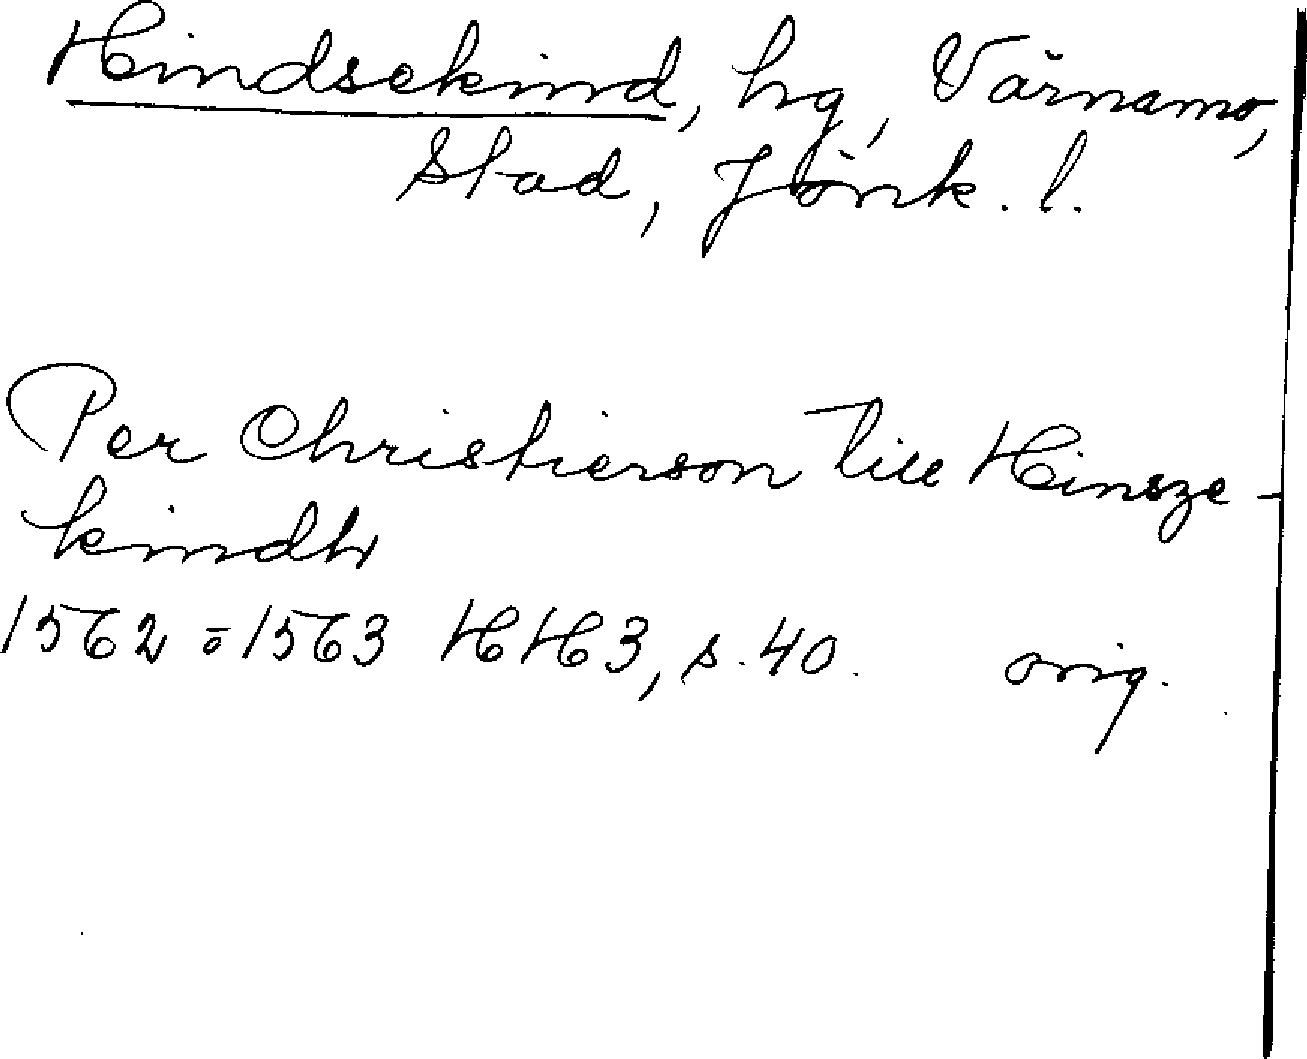 Hindsekind, hg, Värnamo,
Stad, Jönk. l.
Per Christierson till Hinsze-
kindh
1562 o 1563 HH3, s. 40. orig.